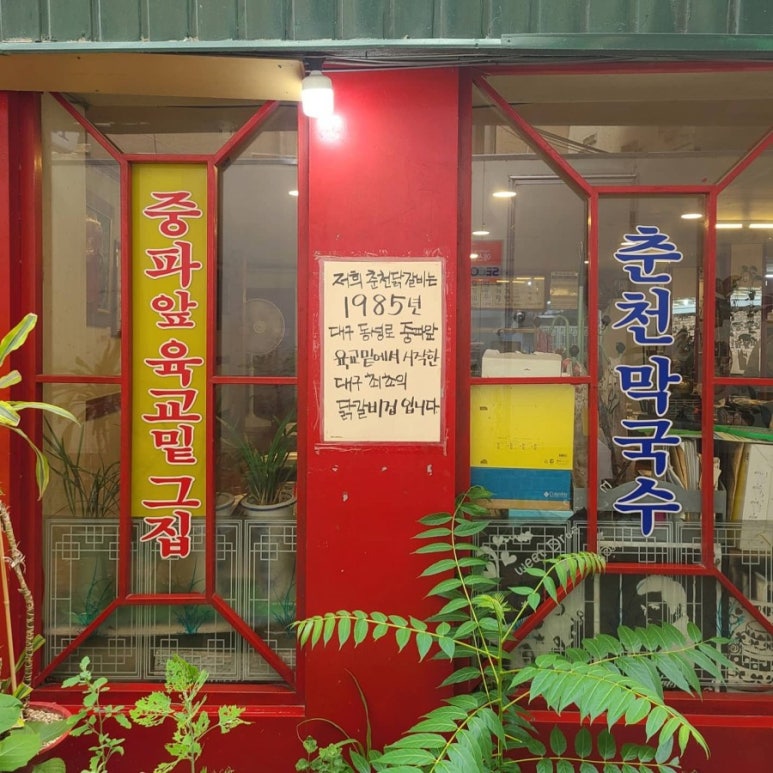 중파앞 육교밑 그집
저희 춘천닭갈비는
1985년
대구 동성로 중파앞
육교밑에서 시작한
대구 최초의
닭갈비집 입니다
춘천막국수